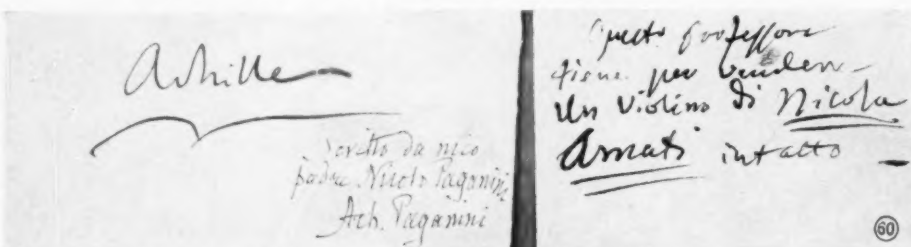 Achille
scritto da mio
padre Nicolò Paganini
Ach. Paganini
Questo professore
tiene per vendere
Un Violino di Nicola
Amati intatto
60